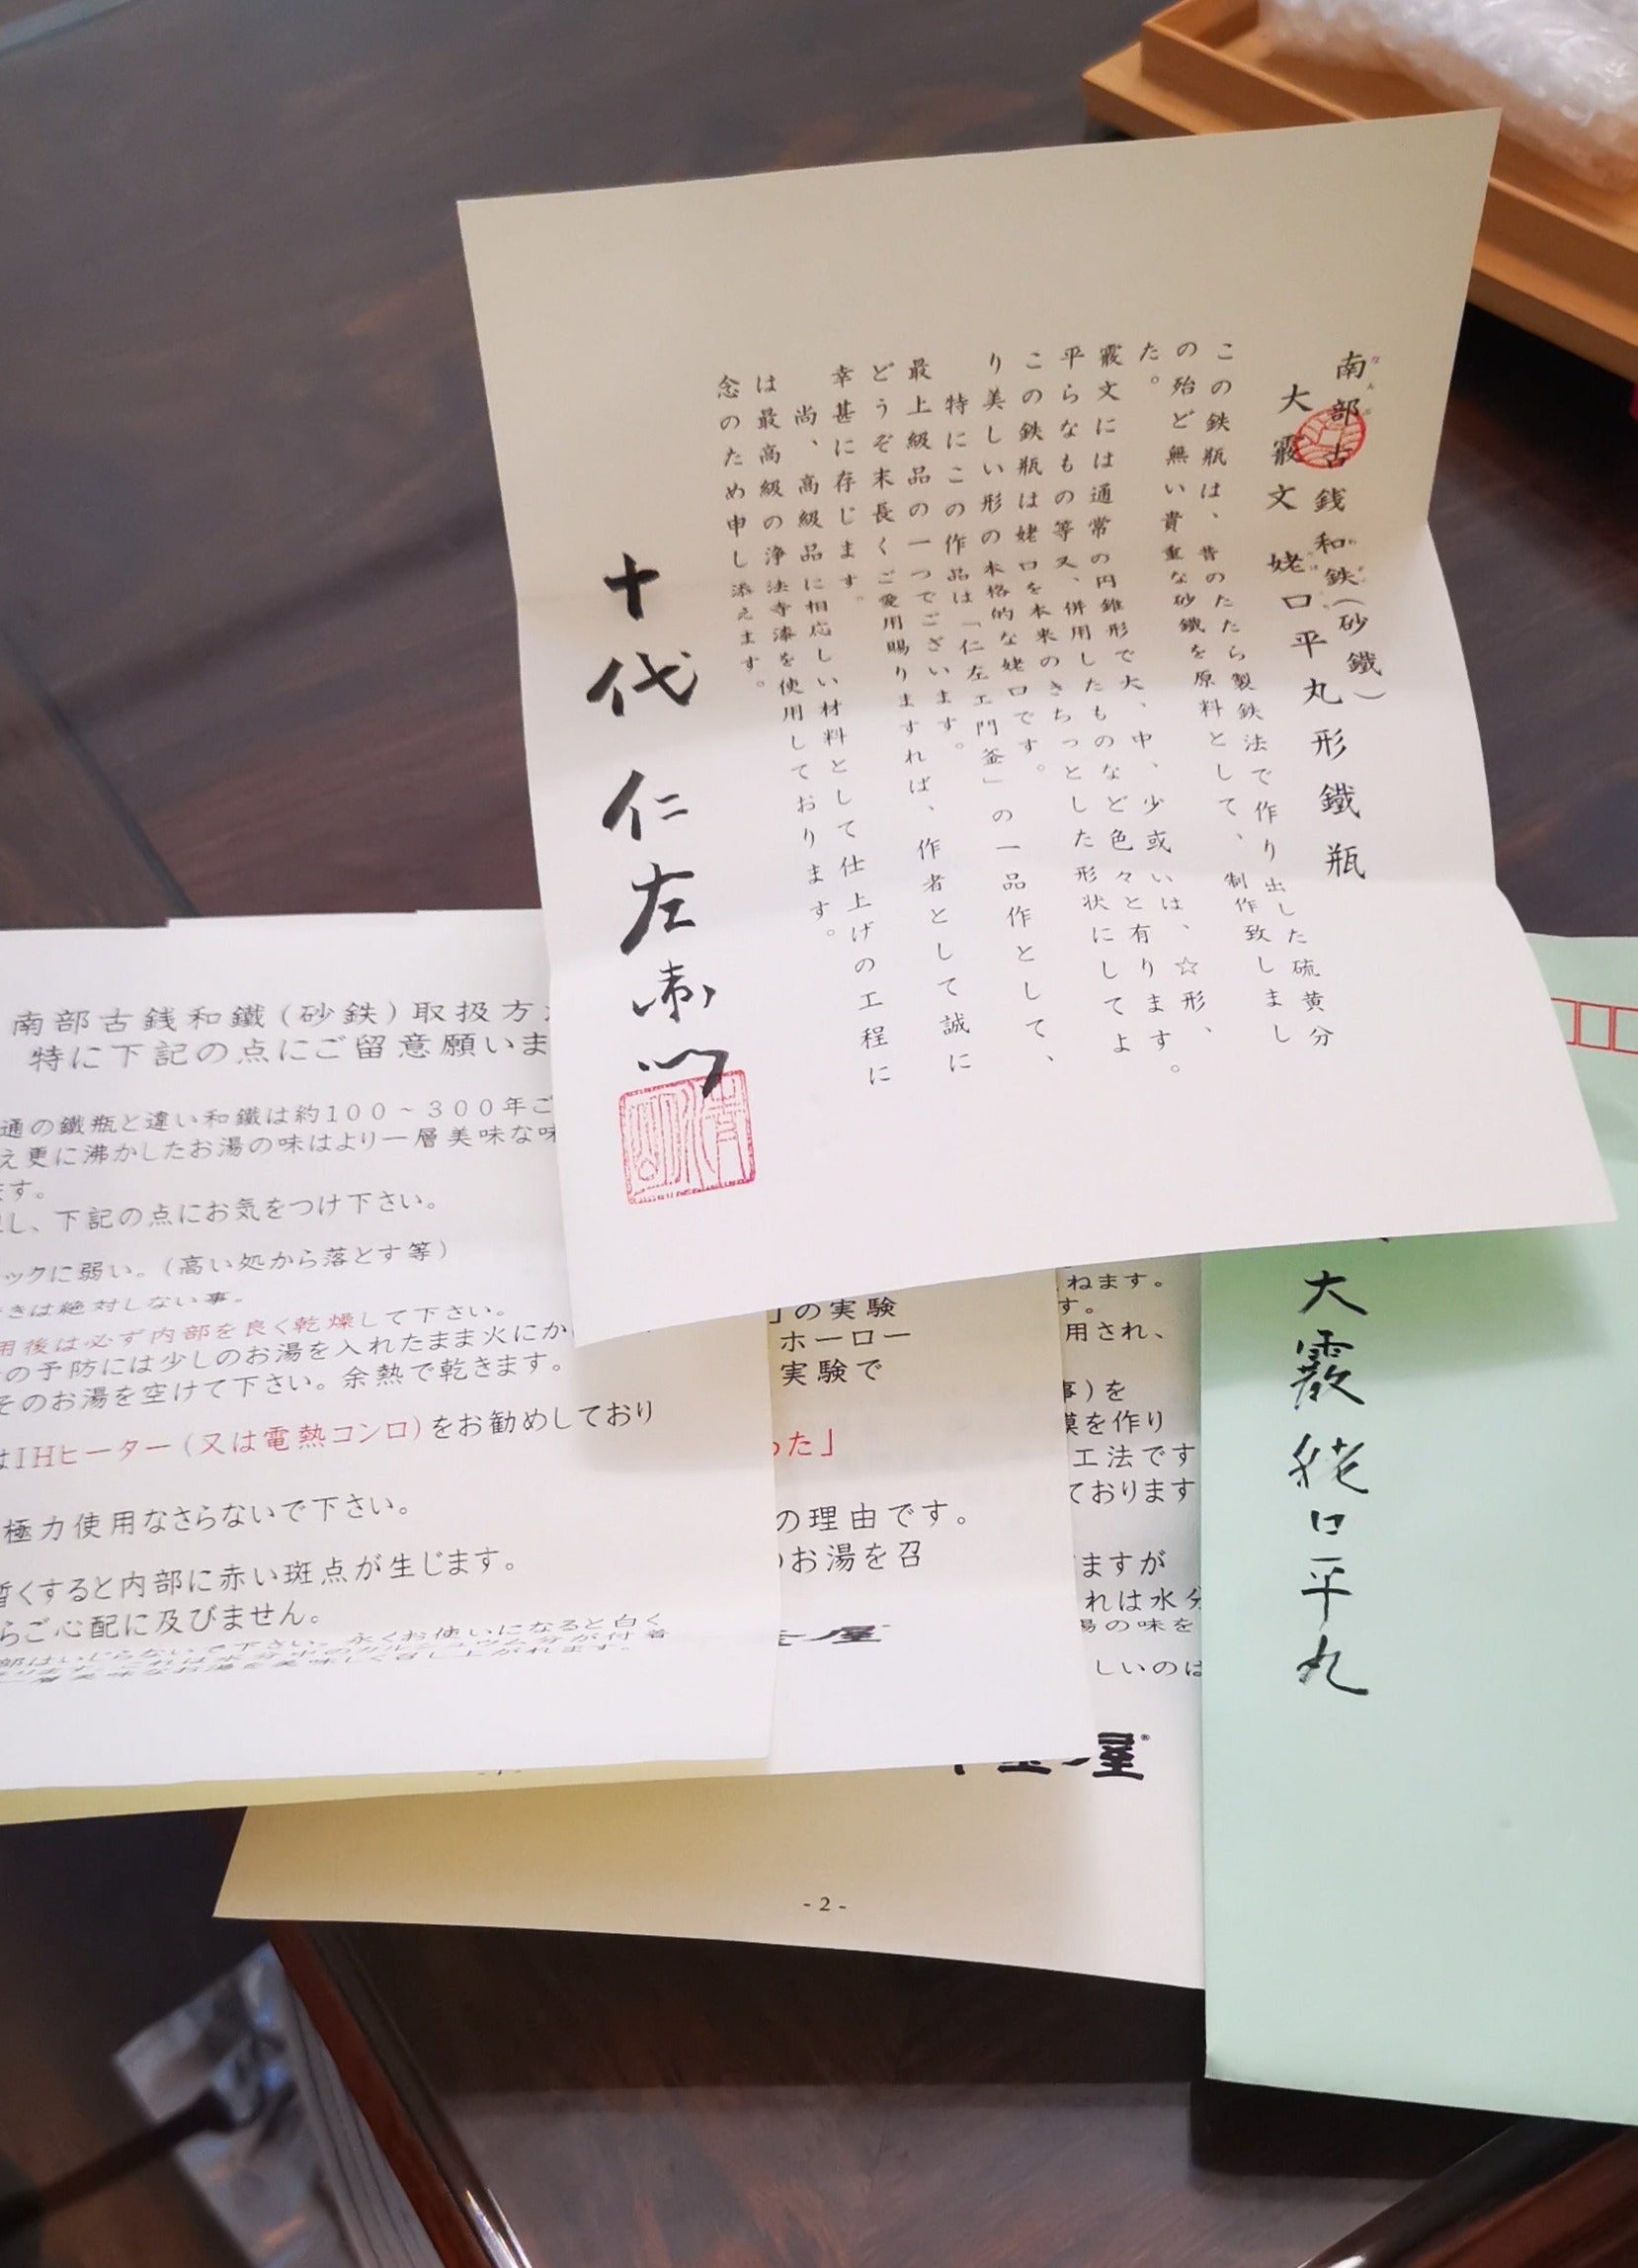 南部古銭和鉄(砂鐵)
大霰文 姥口平丸形鐵瓶
この鉄瓶は、昔のたたら製鉄法で作り出した硫黄分
の殆ど無い貴重な砂鐵を原料として、制作致しまし
た。
霰文には通常の円錐形で大、中、少或いは、☆形、
平らなもの等又、併用したものなど色々と有ります。
この鉄瓶は姥口を本来のきちっとした形状にしてよ
り美しい形の本格的な姥口です。
特にこの作品は「仁左エ門釜」の一品作として、
最上級品の一つでございます。
どうぞ末長くご愛用賜りますれば、作者として誠に
幸甚に存じます。
尚、高級品に相応しい材料として仕上げの工程に
は最高級の浄法寺漆を使用しております。
念のため申し添えます。
十代 仁左衛門
南部古銭和鐵(砂鉄)取扱方
特に下記の点にご留意願いま
通の鐵瓶と違い和鐵は約100~300年
え更に沸かしたお湯の味はより一層美味な味
ます。
し、下記の点にお気をつけ下さい。
ックに弱い。(高い処から落とす等)
きは絶対しない事。
用後は必ず内部を良く乾燥して下さい。
の予防には少しのお湯を入れたまま火にか
そのお湯を空けて下さい。余熱で乾きます。
はIHヒーター(又は電熱コンロ)をお勧めしており
極力使用なさらないで下さい。
暫くすると内部に赤い斑点が生じます。
らご心配に及びません。
部はいじらないで下さい。永くお使いになると白く
」の実験
ホーロー
実験で
った」
の理由です。
のお湯を召
屋
ねます。
す。
用され、
事)を
膜を作り
工法です
ております
ますが
れは水分
湯の味を
しいのは
釜屋
- 2 -
大霰姥口平丸